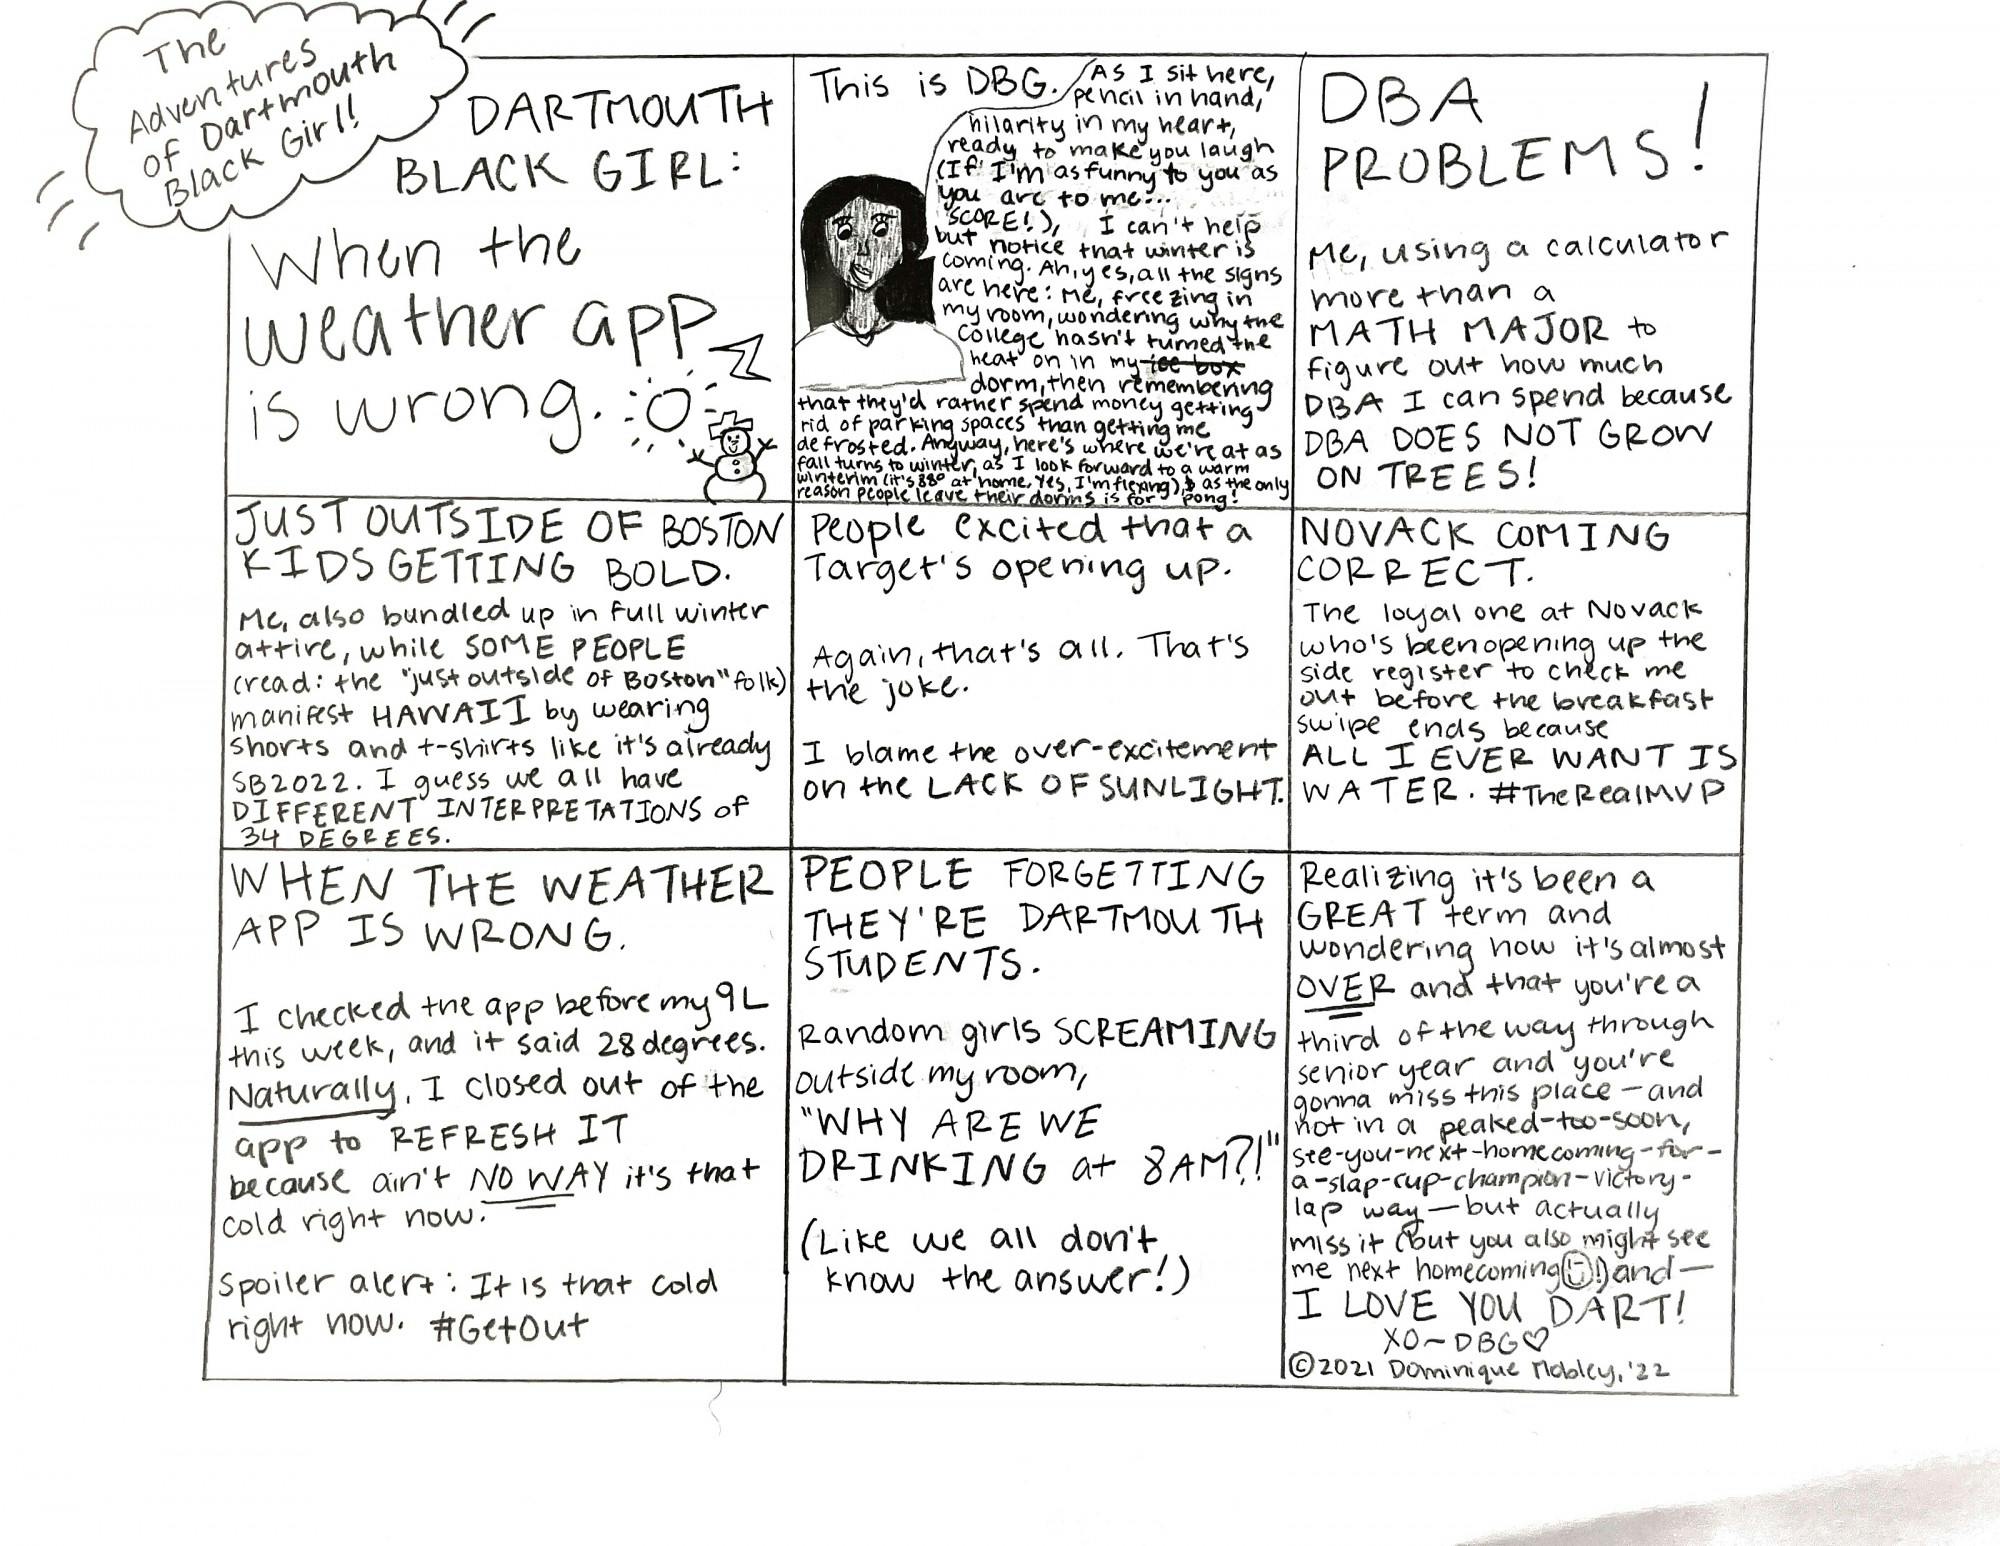 The
Adventures
of Dartmouth
Black Girl!
DARTMOUTH
BLACK GIRL:
When the
weather app
is wrong.
This is DBG.
As I sit here,
pencil in hand,
hilarity in my heart,
ready to make you laugh
(If I'm as funny to you as
you are to me...
SCORE!), I can't help
but notice that winter is
coming. Ah, yes, all the signs
are here: Me, freezing in
my room, wondering why the
College hasn't turned the
heat on in my ice box
dorm, then remembering
that they'd rather spend money getting
rid of parking spaces than getting me
defrosted. Anyway, here's where we're at as
fall turns to winter, as I look forward to a warm
winterim (it's 88° at home. Yes, I'm flexing), & as the only
reason people leave their dorms is for pong!
DBA
PROBLEMS!
Me, using a calculator
more than a
MATH MAJOR to
figure out how much
DBA I can spend because
DBA DOES NOT GROW
ON TREES!
JUST OUTSIDE OF BOSTON
KIDS GETTING BOLD.
Me, also bundled up in full winter
attire, while SOME PEOPLE
(read: the "just outside of Boston" folk)
manifest HAWAII by wearing
shorts and t-shirts like it's already
SB2022. I guess we all have
DIFFERENT INTERPRETATIONS of
34 DEGREES.
People excited that a
Target's opening up.
Again, that's all. That's
the joke.
I blame the over-excitement
on the LACK OF SUNLIGHT.
NOVACK COMING
CORRECT.
The loyal one at Novack
who's been opening up the
side register to check me
out before the breakfast
swipe ends because
ALL I EVER WANT IS
WATER. #TheRealMVP
WHEN THE WEATHER
APP IS WRONG.
I checked the app before my 9L
this week, and it said 28 degrees.
Naturally, I closed out of the
app to REFRESH IT
because ain't NO WAY it's that
cold right now.
Spoiler alert: It is that cold
right now. #GetOut
PEOPLE FORGETTING
THEY'RE DARTMOUTH
STUDENTS.
Random girls SCREAMING
outside my room,
"WHY ARE WE
DRINKING at 8AM?!"
(Like we all don't
know the answer!)
Realizing it's been a
GREAT term and
wondering how it's almost
OVER and that you're a
third of the way through
senior year and you're
gonna miss this place—and
not in a peaked-too-soon,
see-you-next-homecoming-for-
a-slap-cup-champion-victory-
lap way—but actually
miss it (but you also might see
me next homecoming!) and—
I LOVE YOU DART!
XO~DBG♡
©2021 Dominique Mobley, '22